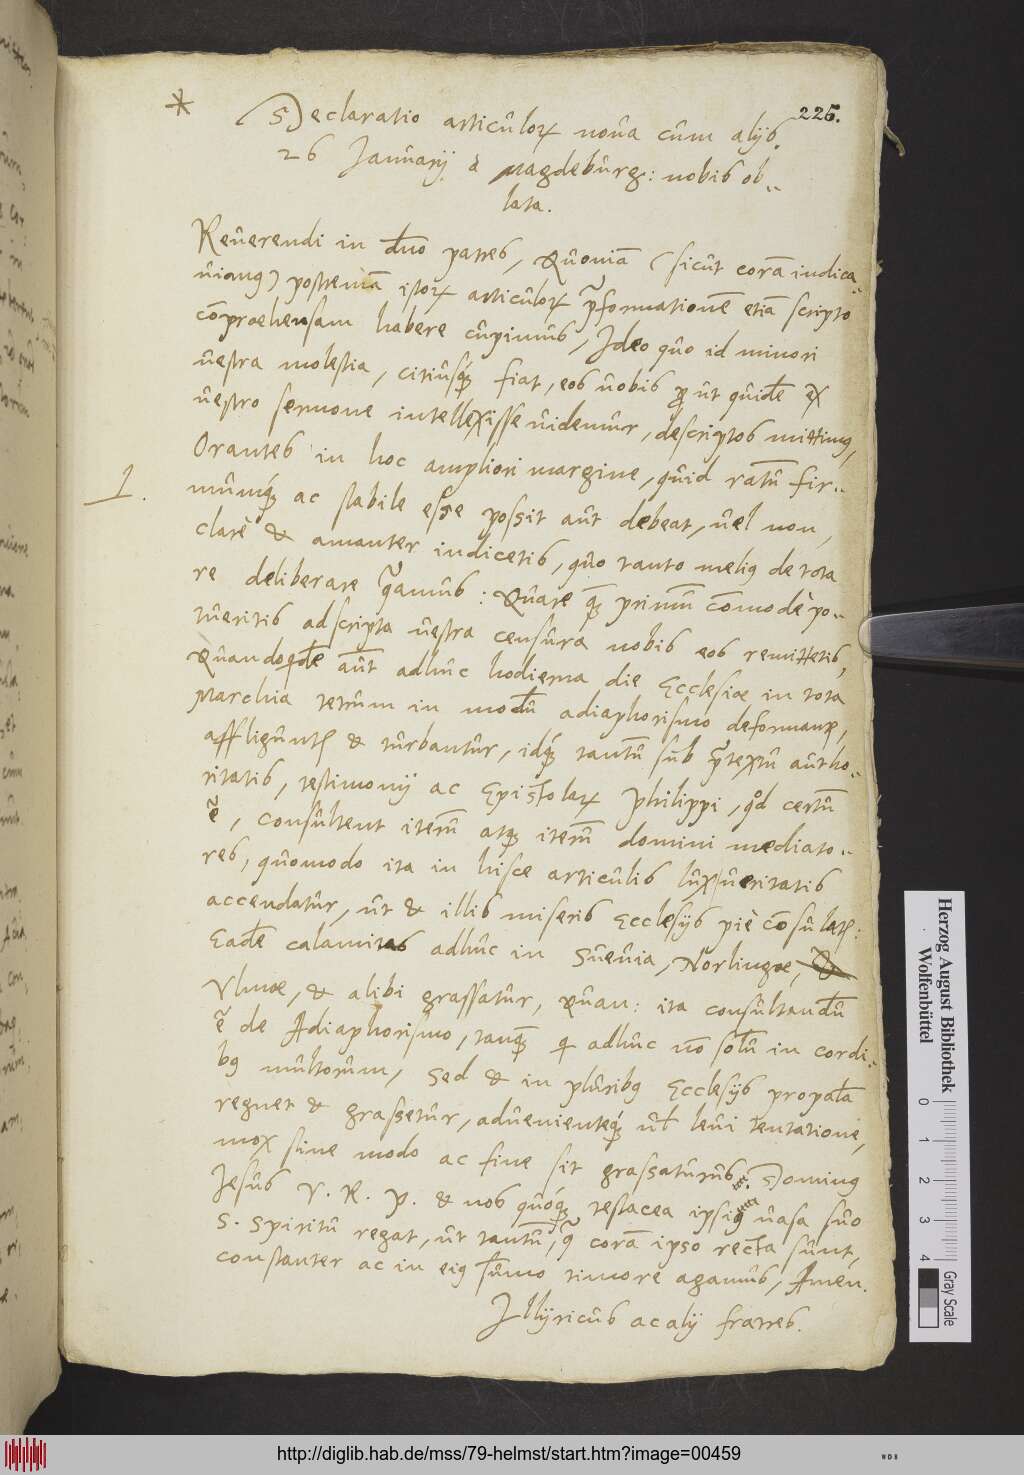 *
225.
Declaratio articuloꝝ noua cum alijs.
26 Januarij à Magdeburg: nobis ob-
lata.
Reuerendi in dno̅ patres, Quonia̅ (sicut cora̅ indica-
uimꝰ) postrema̅ istoꝝ articuloꝝ p̃formatione̅ etia̅ scripto
co̅praehensam habere cupimus, Ideo quo id minori
uestra molestia, citiusq́ꝫ fiat, eos uobis ꝓut quide̅ ex
uestro sermone intellexisse uidemur, descriptos mittimꝰ,
Orantes in hoc ampliori margine, quid ratu̅ fir-
1.
mumq́ꝫ ac stabile esse possit aut debeat, uel non,
clarè & amanter indicetis, quo tanto meliꝰ de tota
re deliberare q̃amus: Quare qꝫ̅ primu̅ co̅modè po-
tueritis adscripta uestra censura nobis eos remittetis,
Quandoqde̅ aut̅ adhuc hodierna die Ecclesiae in tota
Marchia tetrum in modu̅ adiaphorismo deformantꝰ,
affliguntꝰ & turbantur, idq́ꝫ tantu̅ sub p̃textu autho-
ritatis, testimonij ac Epistolaꝝ Philippi, qd̊ certu̅
e̅, consultent iteru̅ atqꝫ iteru̅ domini mediato-
res, quomodo ita in hisce articulis lux ueritatis
accendatur, ut & illis miseris Ecclesijs piè co̅sulatꝰ:
Eade̅ calamitas adhuc in Sueuia, Norlingae, &
Vlmae, & alibi grassatur, Quan: ita consultandu̅
e̅ de Adiaphorismo, tanqꝫ̅ q adhuc no̅ solu̅ in cordi-
bꝰ multorum, sed & in pluribꝰ Ecclesijs propala̅
regnet & grassetur, adueniente̅q́ꝫ ul̅ leui tentatione,
mox sine modo ac fine sit grassaturus. Dominꝰ
Jesus V. R. P. & nos quóqꝫ testacea ipsiꝰ uasa suo
S. Spiritu regat, ut tantu̅, q̃ cora̅ ipso recta sunt,
constanter ac in eiꝰ su̅mo timore agamus, Amen.
Illyricus ac alij fratres.
Herzog August Bibliothek
Wolfenbüttel
0 1 2 3 4
Gray Scale
http://diglib.hab.de/mss/79-helmst/start.htm?image=00459
WDB